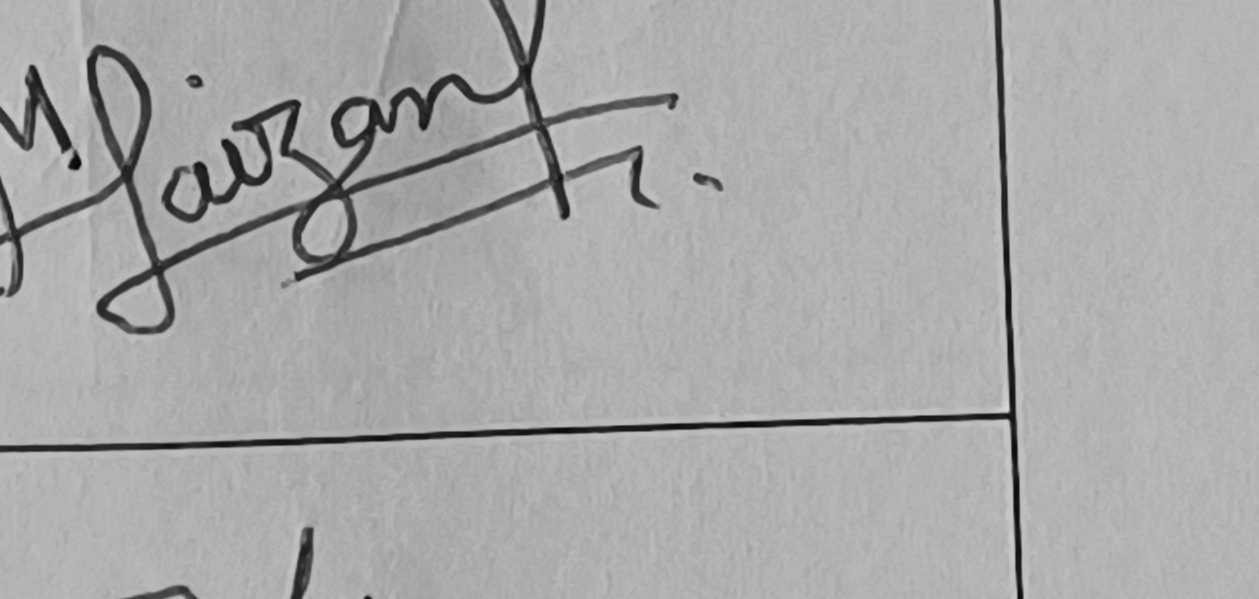 M. Faizan